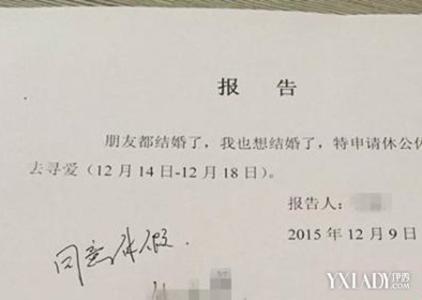 报 告
朋友都结婚了，我也想结婚了，特申请休公休
去寻爱（12月14日-12月18日）。
报告人：
2015年12月9
同意休假.
YXLADY.COM 伊秀